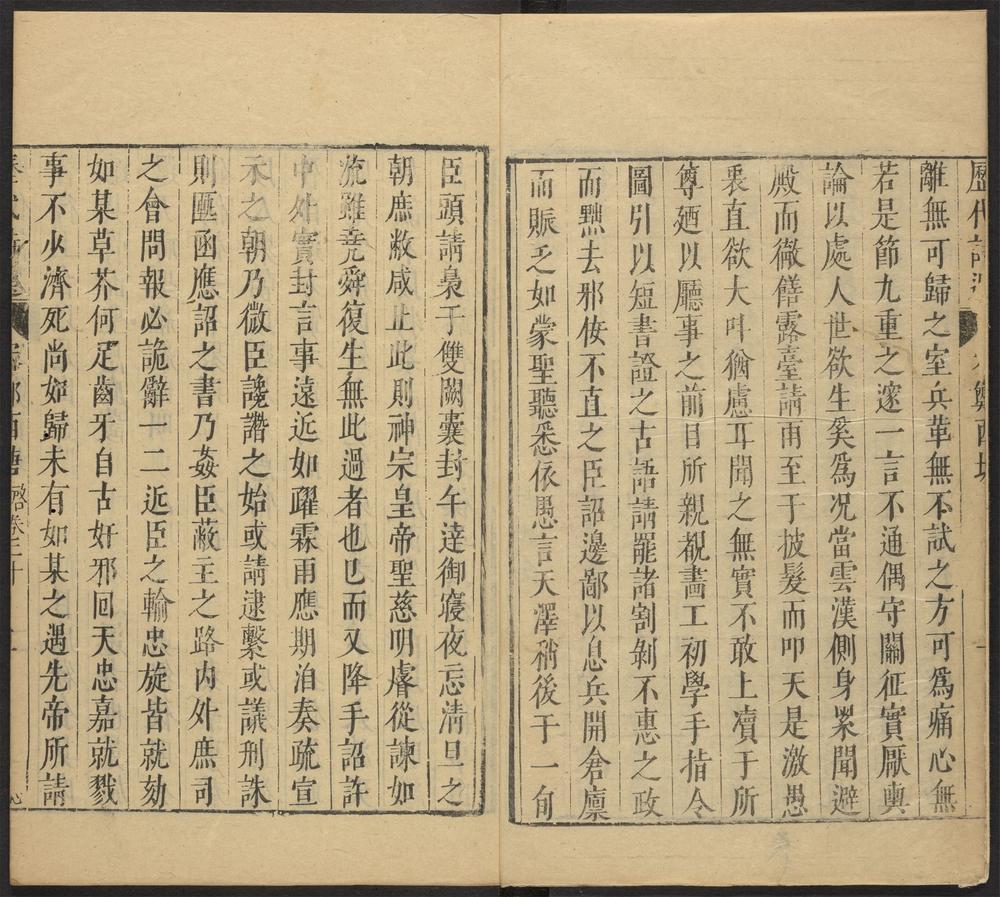 歷代詩
鄭西塘
離無可歸之室兵革無不試之方可爲痛心無
若是節九重之邃一言不通偶守關征實厭輿
論以處人世欲生奚爲况當雲漢側身累聞避
殿而徹饍露臺請雨至于披髮而叩天是激愚
衷直欲大呌猶慮耳聞之無實不敢上凟于所
尊廼以廳事之前目所親覩畵工初學手指令
圖引以短書證之古語請罷諸割剝不惠之政
而黜去邪佞不直之臣詔邊鄙以息兵開倉廩
而賑乏如蒙聖聽悉依愚言天澤稍後于一旬
臣頭請梟于雙闕囊封午達御寢夜忘淸旦之
朝庶敝咸止此則神宗皇帝聖慈明睿從諫如
流雖堯舜復生無此過者也已而又降手詔許
中外實封言事遠近如躍霖雨應期洎奏疏宣
示之朝乃微臣讒譖之始或請逮繫或議刑誅
則匭函應詔之書乃姦臣蔽主之路内外庶司
之會問報必詭辭一二近臣之輸忠旋皆就劾
如某草芥何足齒牙自古奸邪回天忠嘉就戮
事不少濟死尚如歸未有如某之遇先帝所請
鄭西塘 啓卷三十